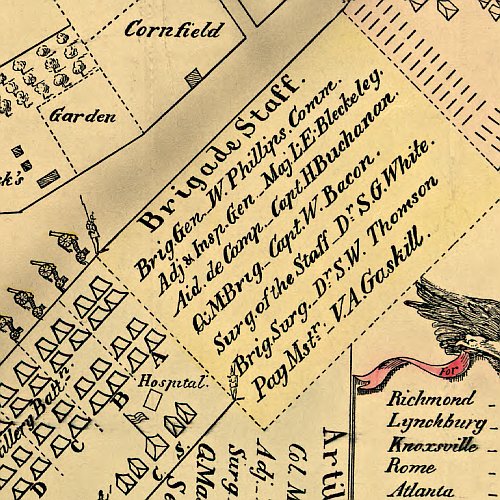 Cornfield
Garden
k's
Brigade Staff.
Brig Gen W. Phillips Comm.
Adj & Insp. Gen Maj. L.E. Bleckeley.
Aid de Camp Capt. H Buchanan.
Q.M. Brig. Capt. W. Bacon.
Surg of the Staff Dr. S.G. White.
Brig. Surg. Dr. S.W. Thomson
Pay Mstr. V.A. Gaskill.
Hospital.
A
B
C
D
illery Batt'n
For
Richmond
Lynchburg
Knoxsville
Rome
Atlanta
Artil
Col. M
Adj.
Surg
Q.Ma
Se